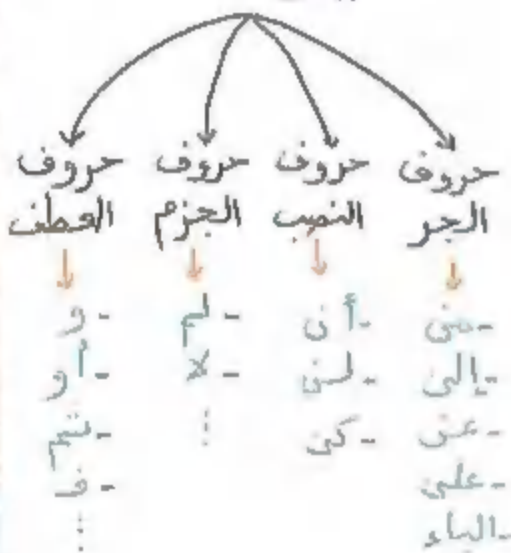 حروف الجر
- من
- إلى
- عن
- على
- الباء
حروف النصب
- أن
- لن
- كي
حروف الجزم
- لم
- لا
⋮
حروف العطف
- و
- أو
- ثم
- ف
⋮